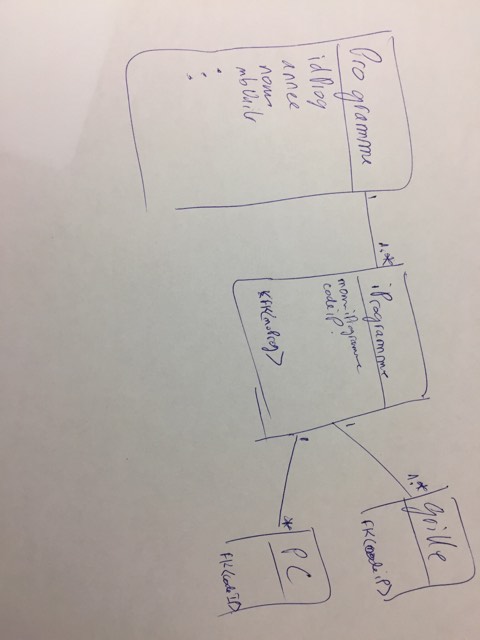 Programme
idProg
annee
nom
1
1..*
iProgramme
nomiProgramme
codeiP
FK(noProg)
1
1..*
Grille
FK(codeiP)
1
*
PC
FK(codeIP)